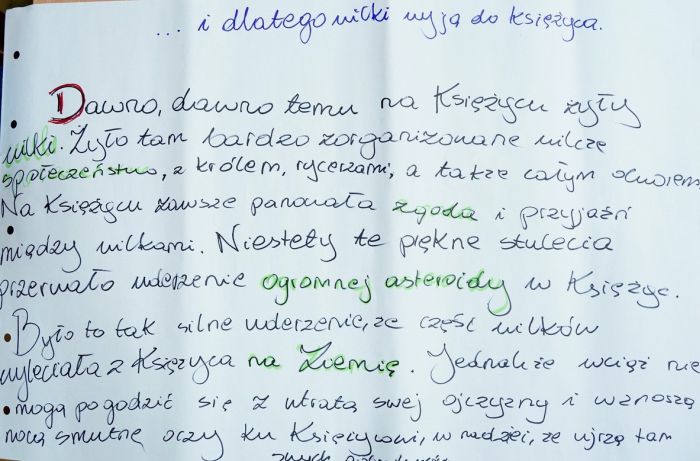 ... i dlatego wilki wyją do Księżyca.
Dawno, dawno temu na Księżycu żyły
wilki. Żyło tam bardzo zorganizowane wilcze
społeczeństwo, z królem, rycerzami, a także całym dworem
Na Księżycu zawsze panowała zgoda i przyjaźń
między wilkami. Niestety te piękne stulecia
przerwało uderzenie ogromnej asteroidy w Księżyc.
Było to tak silne uderzenie, że część wilków
wyleciała z Księżyca na Ziemię. Jednakże wciąż nie
mogą pogodzić się z utratą swej ojczyzny i wznoszą
nocą smutne oczy ku Księżycowi, w nadziei, że ujrzą tam